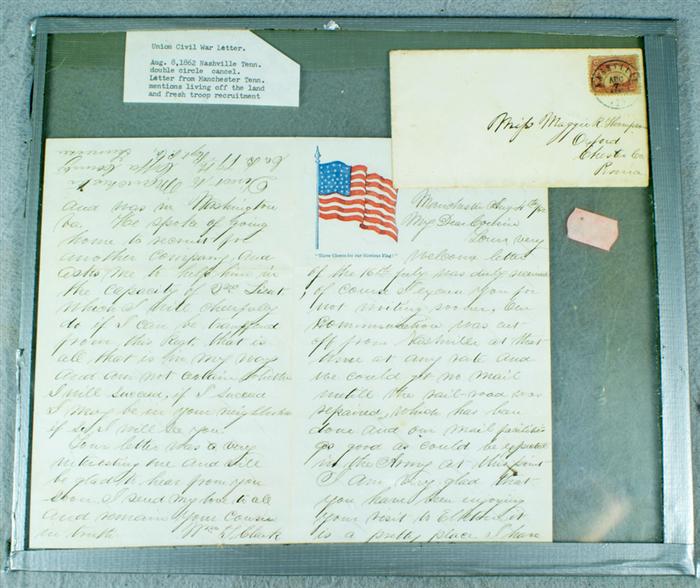 Union Civil War Letter.
Aug. 8,1862 Nashville Tenn.
double circle cancel.
Letter from Manchester Tenn.
mentions living off the land
and fresh troop recruitment
Miss Maggie R Thompson
Oxford
Chester Co
Penna
and was in Washington
Co. He spoke of going
home to recruit for
another Company, and
asks me to help him in
the capacity of 2nd Lieut
which I will cheerfully
do if I can be transferred
from this Regt. that is
all that is in my way
and can not certain whether
I will succeed, if I succeed
I may be in your neighborhood
if so I will see you.
Your letter was a very
interesting one and I'll
be glad to hear from you
soon. I send my love to all
and remain your Cousin
in truth. Wm Clark
"Three Cheers for our Glorious Flag!"
Manchester Aug 4th
My Dear Cousin
Your very
welcome letter
of the 16th July was duly received
of course I excuse you for
not writing sooner, our
communication was cut
off from Nashville at that
time at any rate and
we could get no mail
until the rail-road was
repaired, which has been
done and our mail facilities
as good as could be expected
in the Army at this point
I am very glad that
you have been enjoying
your visit to Elkton it
is a pretty place I have